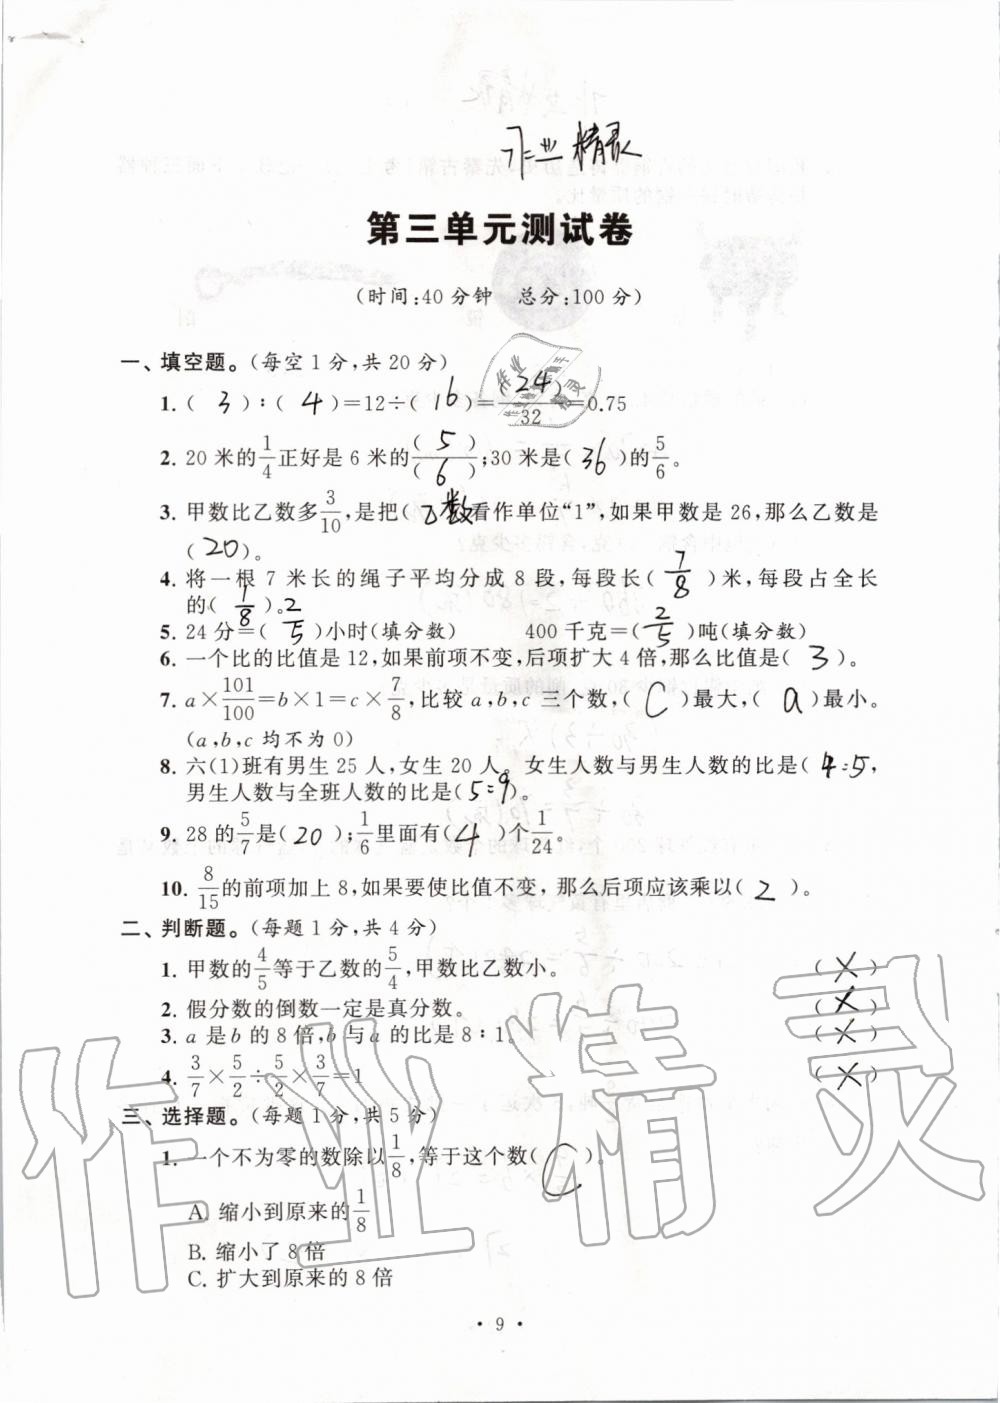 作业精灵
第三单元测试卷
(时间:40分钟 总分:100分)
一、填空题。(每空1分,共20分)
1. ( 3 ):( 4 )=12÷( 16 )=24/32=0.75
2. 20米的1/4正好是6米的( 5 )/( 6 );30米是( 36 )的5/6。
3. 甲数比乙数多3/10,是把( 乙数 看作单位“1”,如果甲数是26,那么乙数是
( 20 )。
4. 将一根7米长的绳子平均分成8段,每段长( 7/8 )米,每段占全长
的( 1/8 )。
5. 24分=( 2/5 )小时(填分数) 400千克=( 2/5 )吨(填分数)
6. 一个比的比值是12,如果前项不变,后项扩大4倍,那么比值是( 3 )。
7. a×101/100=b×1=c×7/8,比较a,b,c三个数,( C )最大,( a )最小。
(a,b,c均不为0)
8. 六(1)班有男生25人,女生20人。女生人数与男生人数的比是( 4:5,
男生人数与全班人数的比是( 5:9 )。
9. 28的5/7是( 20 );1/6里面有( 4 )个1/24。
10. 8/15的前项加上8,如果要使比值不变,那么后项应该乘以( 2 )。
二、判断题。(每题1分,共4分)
1. 甲数的4/5等于乙数的5/4,甲数比乙数小。 ( × )
2. 假分数的倒数一定是真分数。 ( × )
3. a是b的8倍,b与a的比是8:1。 ( × )
4. 3/7×5/2÷5/2×3/7=1 ( × )
三、选择题。(每题1分,共5分)
1. 一个不为零的数除以1/8,等于这个数( C )。
A. 缩小到原来的1/8
B. 缩小了8倍
C. 扩大到原来的8倍
• 9 •
作业精灵